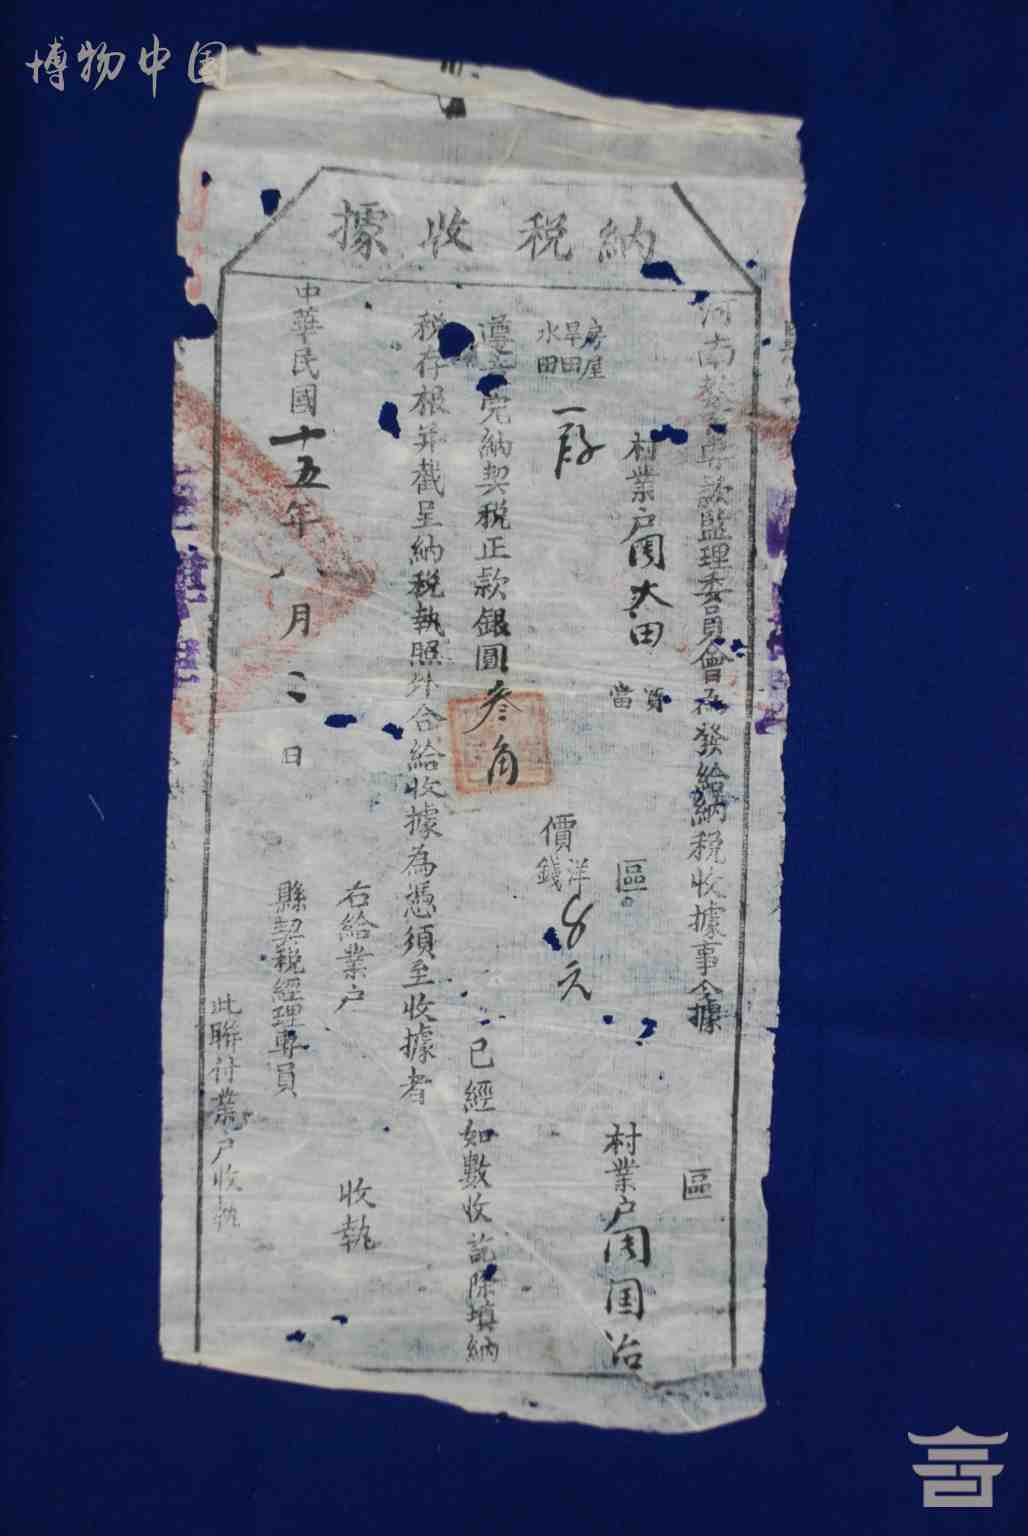 博物中国
納稅收據
河南整與款監理委員會為發給納稅收據事今據
區
村業戶周大田
買
當
區
村業戶周国治
房屋
旱田
水田
一段
價
洋
錢
8元
遵章完納契稅正款銀圓叁角
已經如數收訖除填納
稅存根并截呈納稅執照外合給收據為憑須至收據者
右給業戶
收執
中華民國十五年八月二日
縣契稅經理專員
此聯付業戶收執